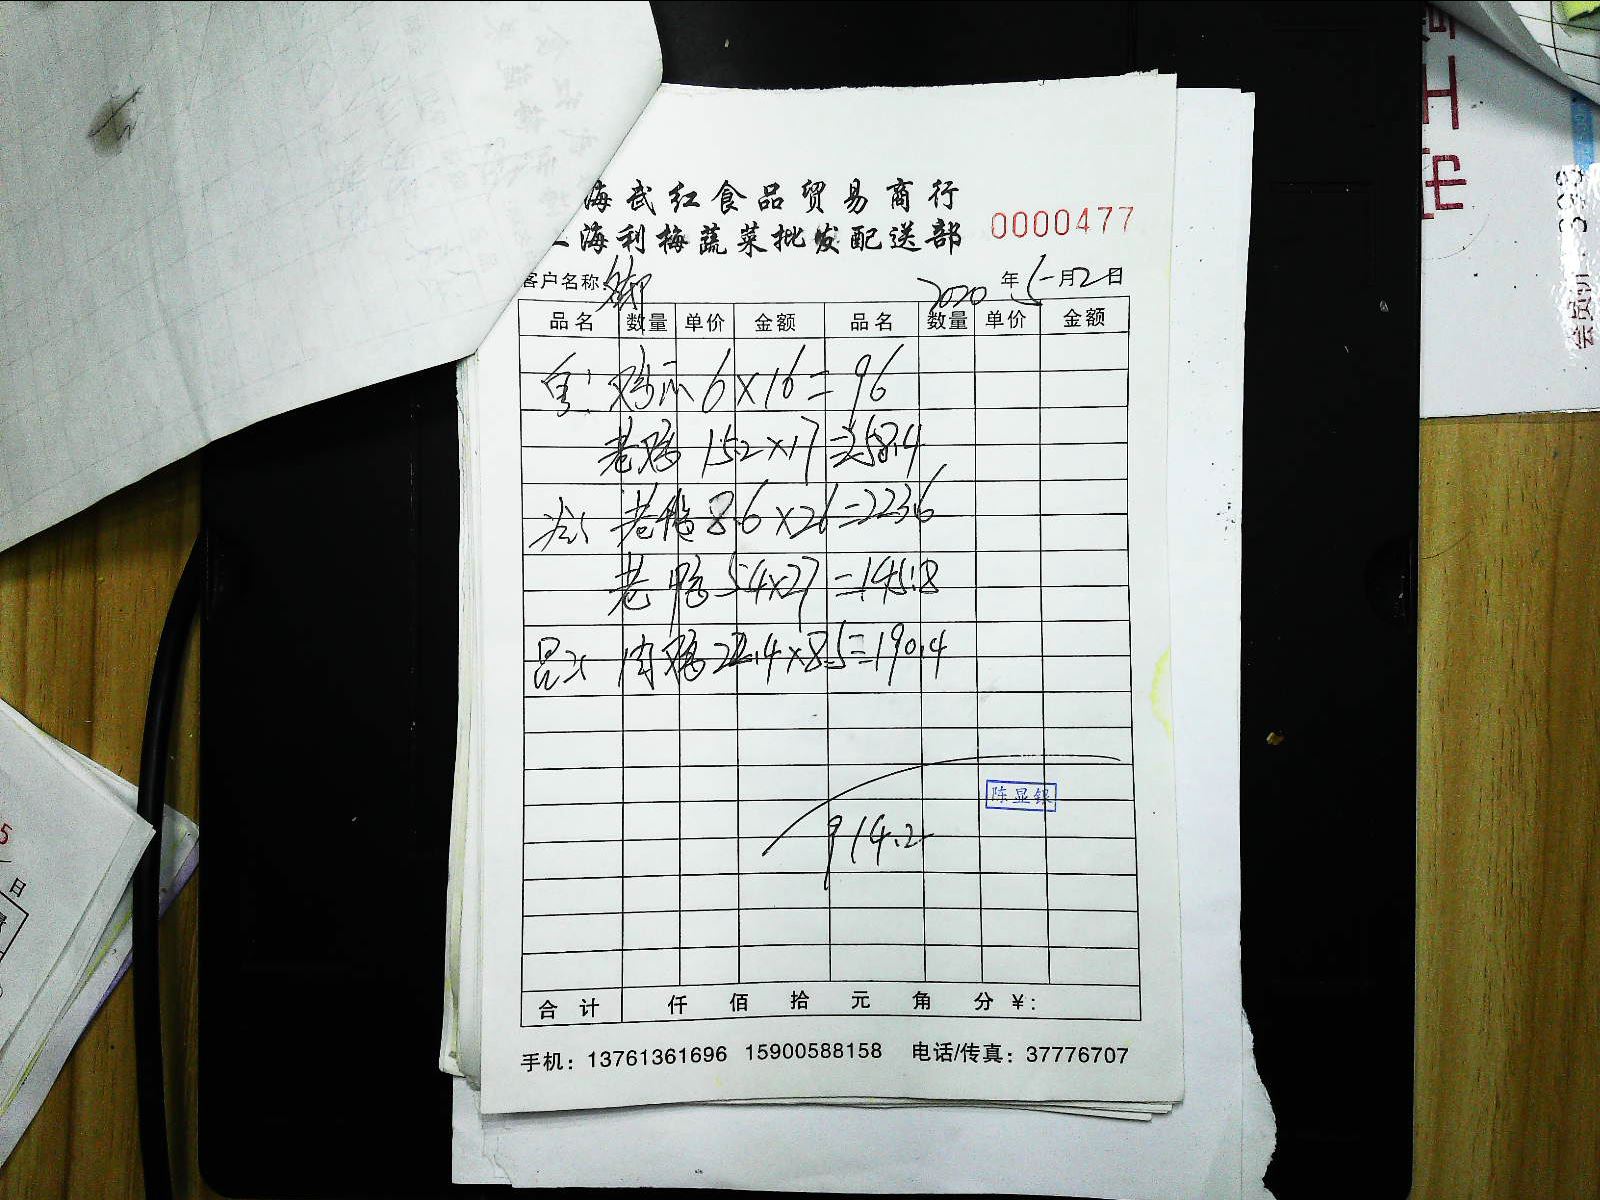 海武红食品贸易商行
上海利梅蔬菜批发配送部
0000477
客户名称:
2020年5月2日
品名 数量 单价 金额 品名 数量 单价 金额
6×16=96
老鸡 15.2×17=258.4
老鸭 8.6×26=223.6
老鸭 5.4×27=145.8
肉鸡 22.4×8.5=190.4
陈显银
914.2
合计 仟 佰 拾 元 角 分 ¥:
手机: 13761361696 15900588158 电话/传真: 37776707